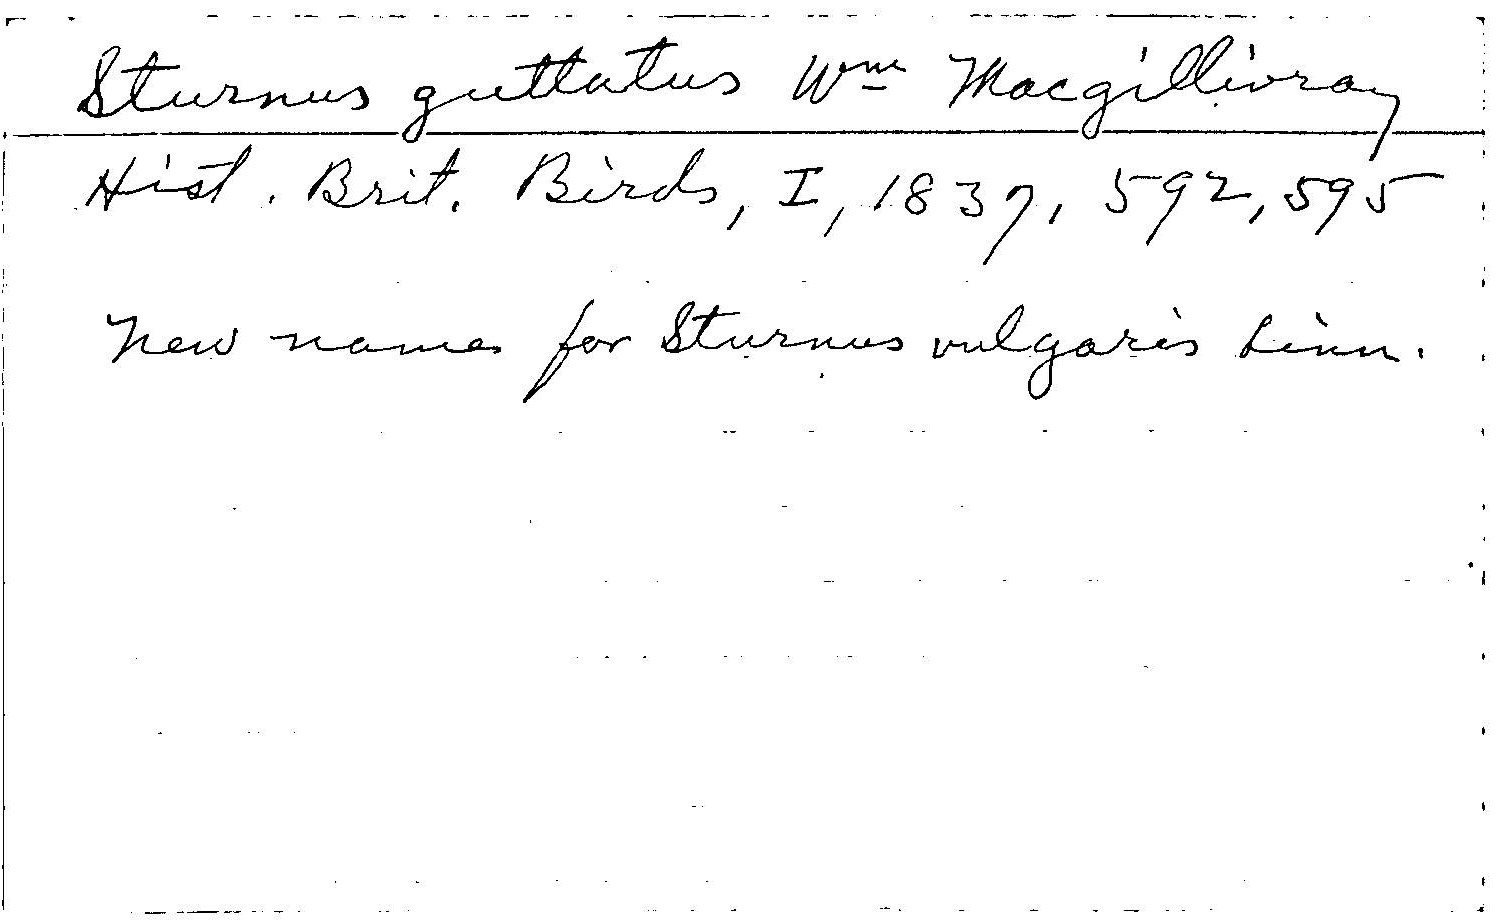 Sturnus guttatus Wm Macgillivray
Hist. Brit. Birds, I, 1837, 592, 595
New name for Sturnus vulgaris Linn.